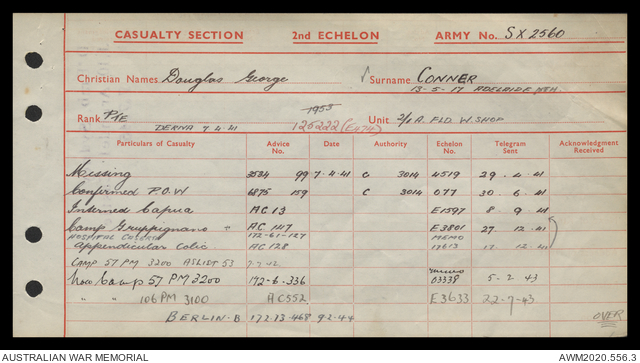 CASUALTY SECTION 2nd ECHELON ARMY No. SX2560
Christian Names Douglas George Surname CONNER
13-5-17 ADELAIDE
1953
Rank PTE 126222 (E474) Unit 2/1 A. FLD W.SHOP
DERNA 7 4 41
Particulars of Casualty Advice No. Date Authority Echelon No. Telegram Sent Acknowledgment Received
Missing 3534 99 7-4-41 C 3014 4519 29. 4. 41
Confirmed P.O.W 6875 159 C 3014 077 30. 6. 41
Interned Capua AC 13 E1597 8. 9 41
Camp Gruppignano + AC 147 E3801 27. 12. 41
HOSPITAL 172-61-127 MEMO
Appendicular Colic AC 128 12. 41
CAMP 57 PM 3200 53
Now Camp 57 PM 3200 172-6-336 03338 5-2 43
" " 106 PM 3100 AC552 E3633 22-7-43
BERLIN-B 172-13-468 9-2-44
OVER
AUSTRALIAN WAR MEMORIAL AWM2020.556.3